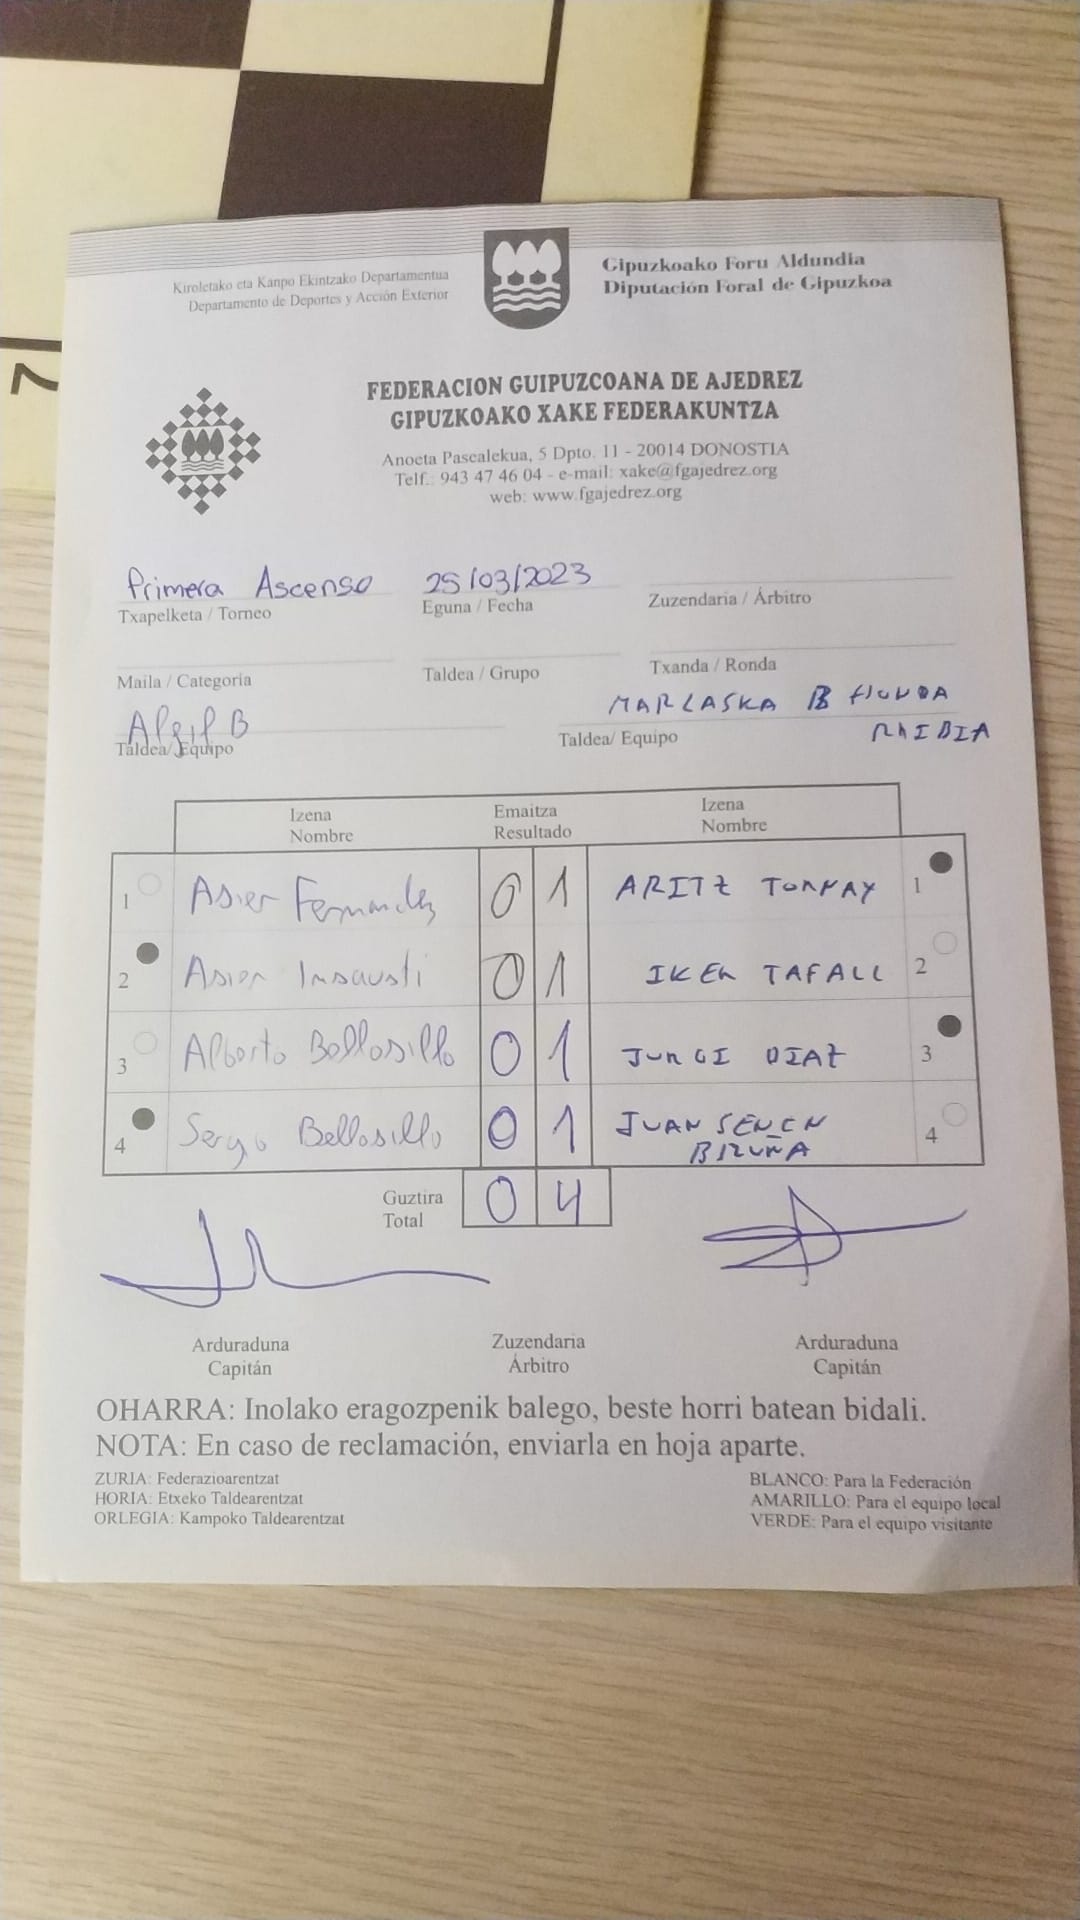 7
Kiroletako eta Kanpo Ekintzako Departamentua
Departamento de Deportes y Acción Exterior
Gipuzkoako Foru Aldundia
Diputación Foral de Gipuzkoa
FEDERACION GUIPUZCOANA DE AJEDREZ
GIPUZKOAKO XAKE FEDERAKUNTZA
Anoeta Pasealekua, 5 Dpto. 11 - 20014 DONOSTIA
Telf.: 943 47 46 04 - e-mail: xake@fgajedrez.org
web: www.fgajedrez.org
Primera Ascenso 25/03/2023
Txapelketa / Torneo Eguna / Fecha Zuzendaria / Árbitro
Maila / Categoría Taldea / Grupo Txanda / Ronda
Algil B MARLASKA B HONDA
RRIBIA
Taldea/ Equipo Taldea/ Equipo
Izena Emaitza Izena
Nombre Resultado Nombre
1 Asier Fernandez 0 1 ARITZ TORNAY 1
2 Asier Insausti 0 1 IKER TAFALL 2
3 Alberto Bellosillo 0 1 JURGI DIAZ 3
4 Sergio Bellosillo 0 1 JUAN SENEN
BIZUÑA 4
Guztira
Total 0 4
Arduraduna Zuzendaria Arduraduna
Capitán Árbitro Capitán
OHARRA: Inolako eragozpenik balego, beste horri batean bidali.
NOTA: En caso de reclamación, enviarla en hoja aparte.
ZURIA: Federazioarentzat BLANCO: Para la Federación
HORIA: Etxeko Taldearentzat AMARILLO: Para el equipo local
ORLEGIA: Kampoko Taldearentzat VERDE: Para el equipo visitante